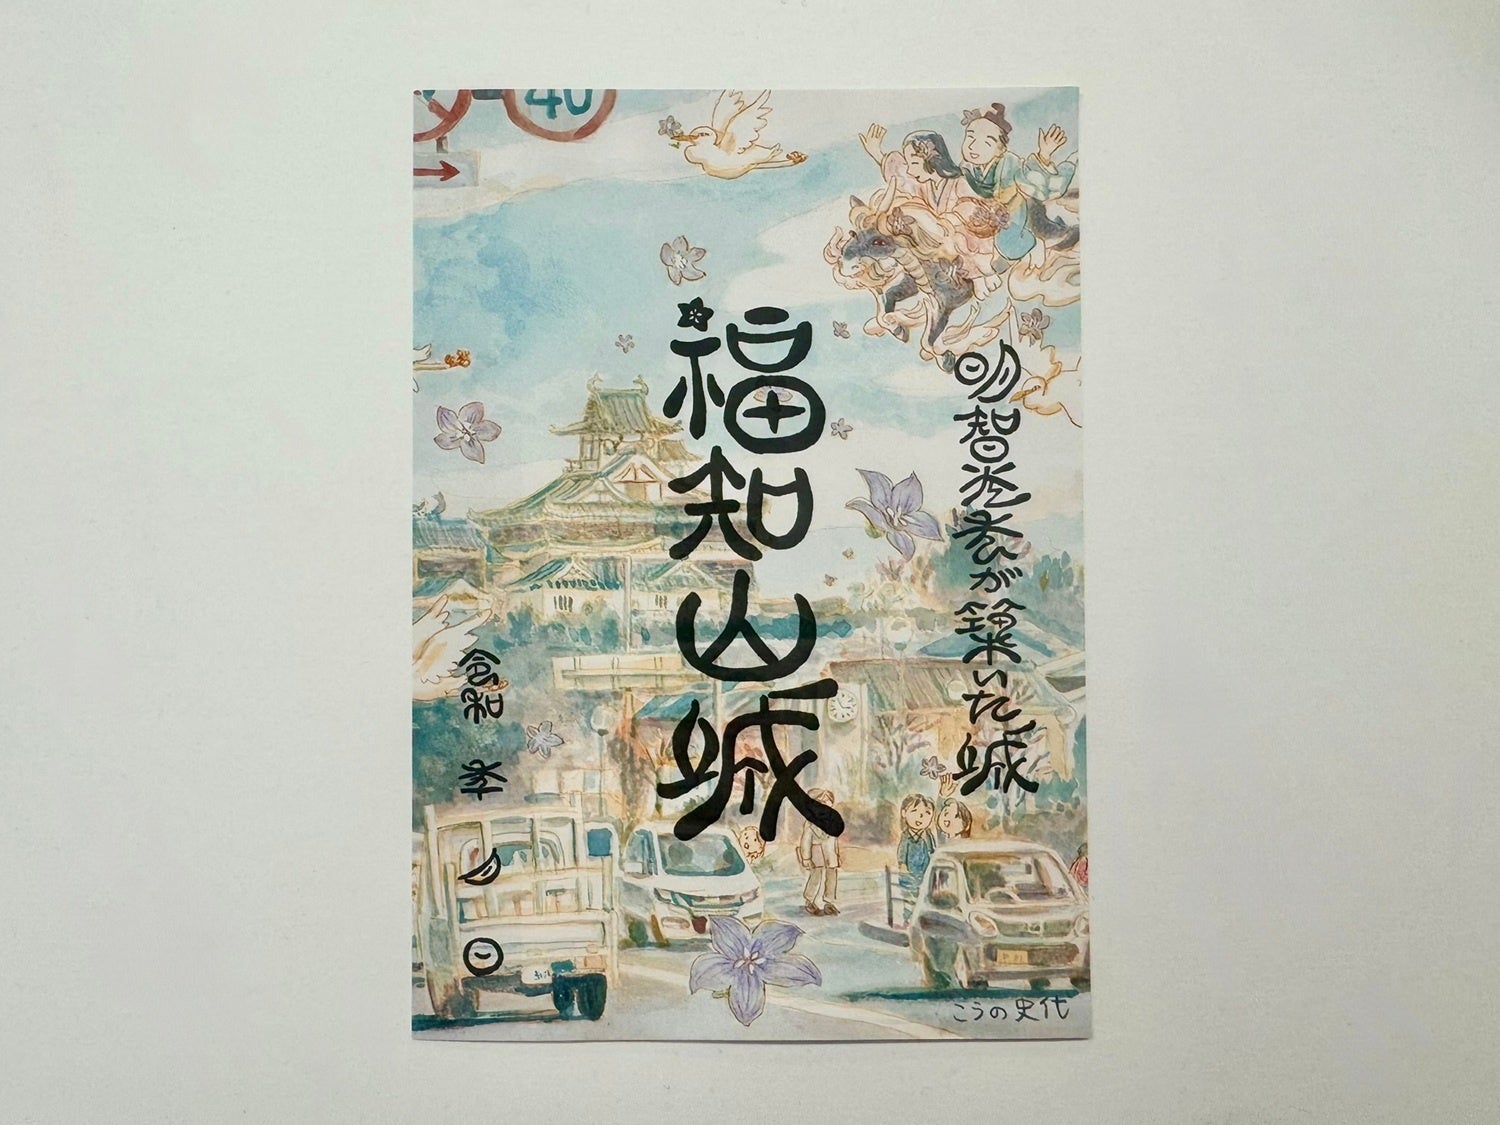 40
明智光秀が築いた城
福知山城
令和 年 月 日
こうの史代